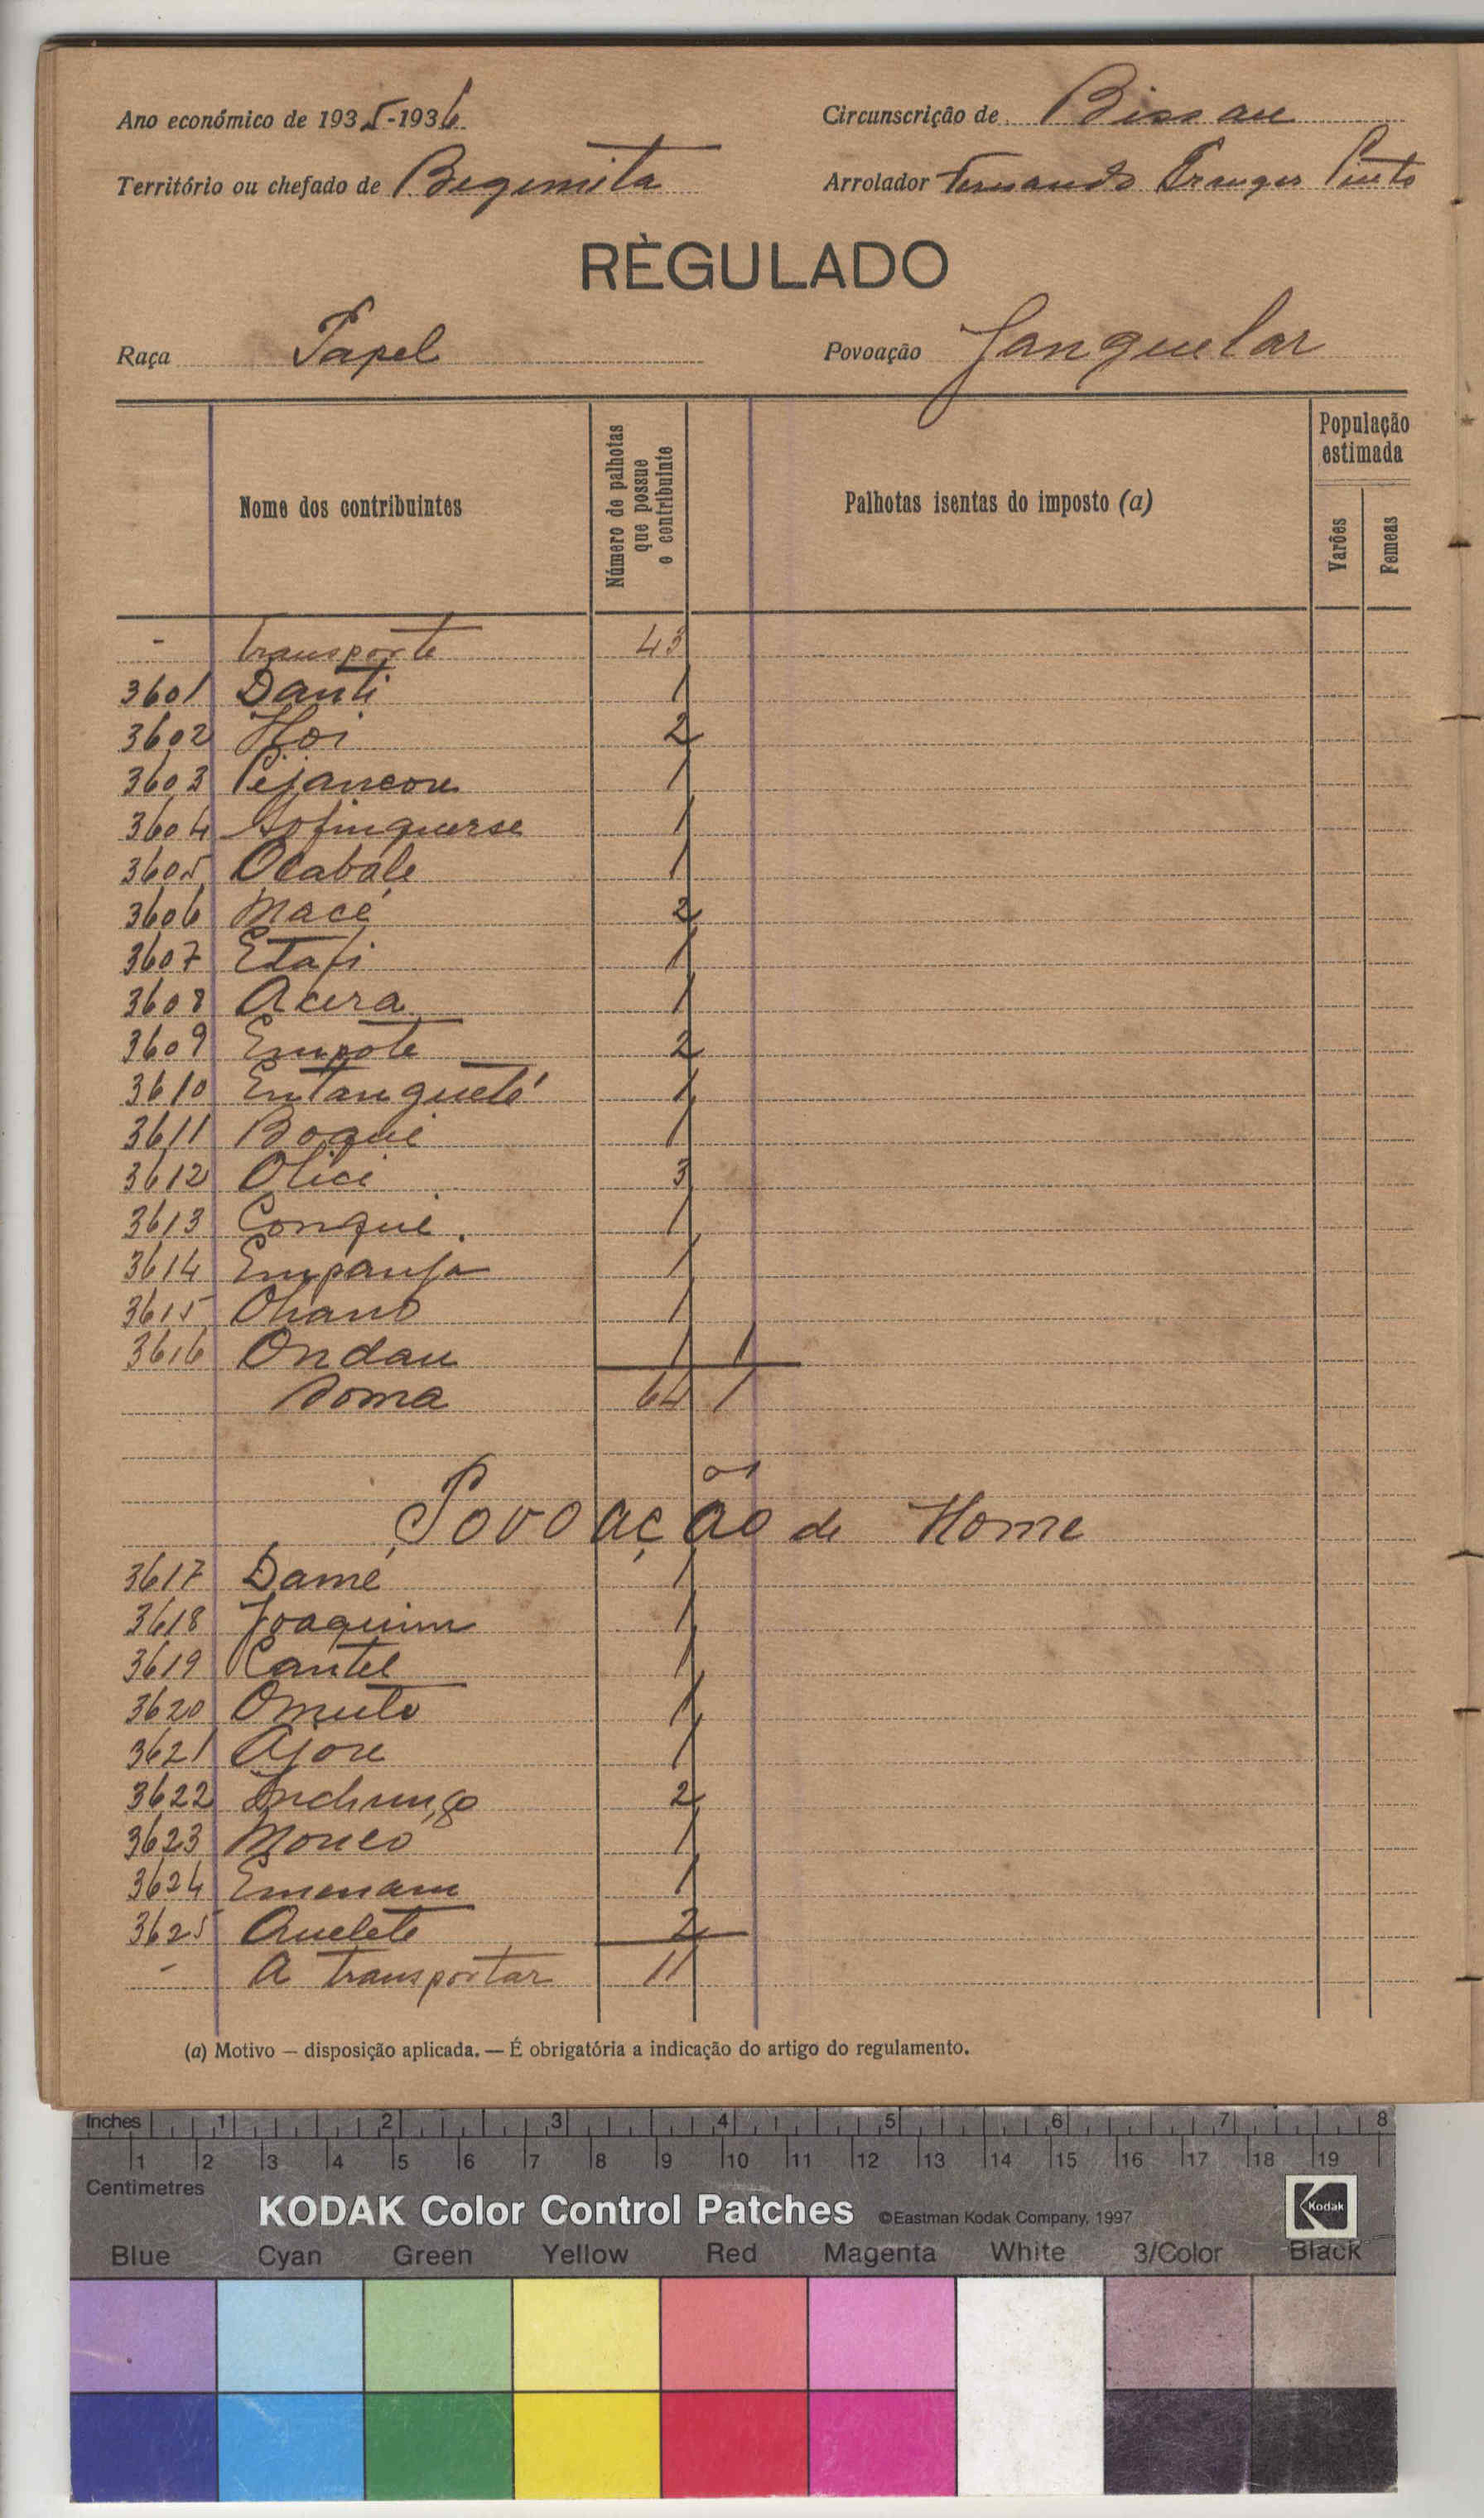 Ano económico de 1935-1936 Circunscrição de Bissau
Território ou chefado de Begimita Arrolador Fernando Pinto
RÈGULADO
Raça Papel Povoação Janguelar
Nome dos contribuintes Número de palhotas que possue o contribuinte Palhotas isentas do imposto (a) População estimada Varões Femeas
- Transporte 43
3601 Danti 1
3602 Hoi 2
3603 Pejancou 1
3604 1
3605 Ocabale 1
3606 Macé 2
3607 Etafi 1
3608 Acera 1
3609 Empote 2
3610 1
3611 Boqui 1
3612 Olici 3
3613 Conqui 1
3614 Empanja 1
3615 Ohano 1
3616 Ondau 1 1
Soma 64 1
Povoação de Home
3617 Damé 1
3618 Joaquim 1
3619 Cantel 1
3620 Omuto 1
3621 Ajore 1
3622 2
3623 1
3624 Emenam 1
3625 Quelete 2
- A transportar 11
(a) Motivo — disposição aplicada. — É obrigatória a indicação do artigo do regulamento.
Inches 1 2 3 4 5 6 7 8
1 2 3 4 5 6 7 8 9 10 11 12 13 14 15 16 17 18 19
Centimetres
KODAK Color Control Patches ©Eastman Kodak Company, 1997 Kodak
Blue Cyan Green Yellow Red Magenta White 3/Color Black